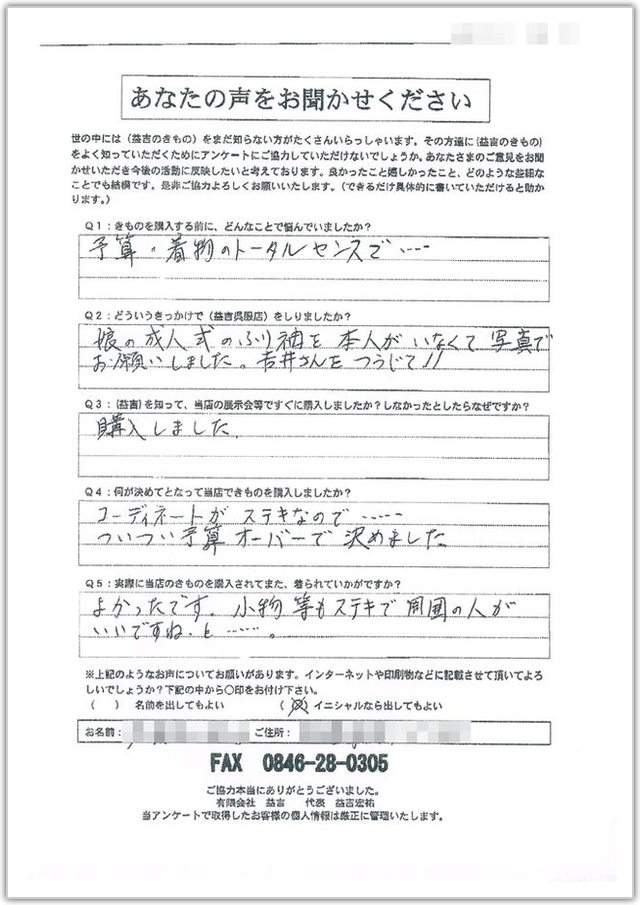 あなたの声をお聞かせください
世の中には（益吉のきもの）をまだ知らない方がたくさんいらっしゃいます。その方達に（益吉のきもの）
をよく知っていただくためにアンケートにご協力していただけないでしょうか。あなたさまのご意見をお聞
かせいただき今後の活動に反映したいと考えております。良かったこと嬉しかったこと、どのような些細な
ことでも結構です。是非ご協力よろしくお願いいたします。（できるだけ具体的に書いていただけると助か
ります。）
Q1：きものを購入する前に、どんなことで悩んでいましたか？
予算・着物のトータルセンスで……
Q2：どういうきっかけで（益吉呉服店）をしりましたか？
娘の成人式のふり袖を本人がいなくて写真で
お願いしました。吉井さんをつうじて!!
Q3：（益吉）を知って、当店の展示会等ですぐに購入しましたか？しなかったとしたらなぜですか？
購入しました。
Q4：何が決めてとなって当店できものを購入しましたか？
コーディネートがステキなので……
ついつい予算オーバーで決めました
Q5：実際に当店のきものを購入されてまた、着られていかがですか？
よかったです。小物等もステキで周囲の人が
いいですね。と……。
※上記のようなお声についてお願いがあります。インターネットや印刷物などに記載させて頂いてよろ
しいでしょうか？下記の中から〇印をお付け下さい。
（　）名前を出してもよい　（〇）イニシャルなら出してもよい
お名前：　ご住所：
FAX 0846-28-0305
ご協力本当にありがとうございました。
有限会社　益吉　代表　益吉宏祐
当アンケートで取得したお客様の個人情報は厳正に管理いたします。